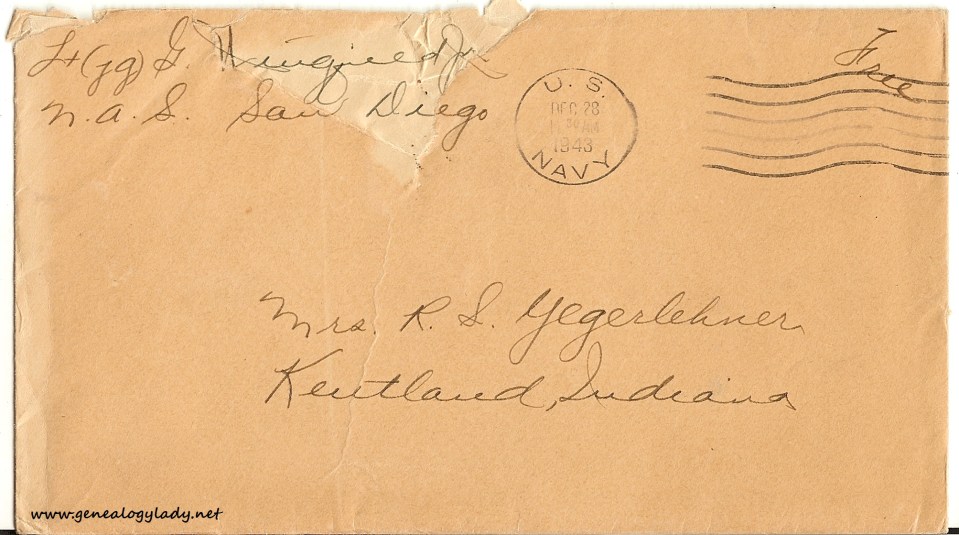 Free
Lt (jg) G.
N.A.S. San Diego
U.S.
DEC 28
AM
1943
NAVY
Mrs. R. S. Yegerlehner
Kentland, Indiana
www.genealogylady.net